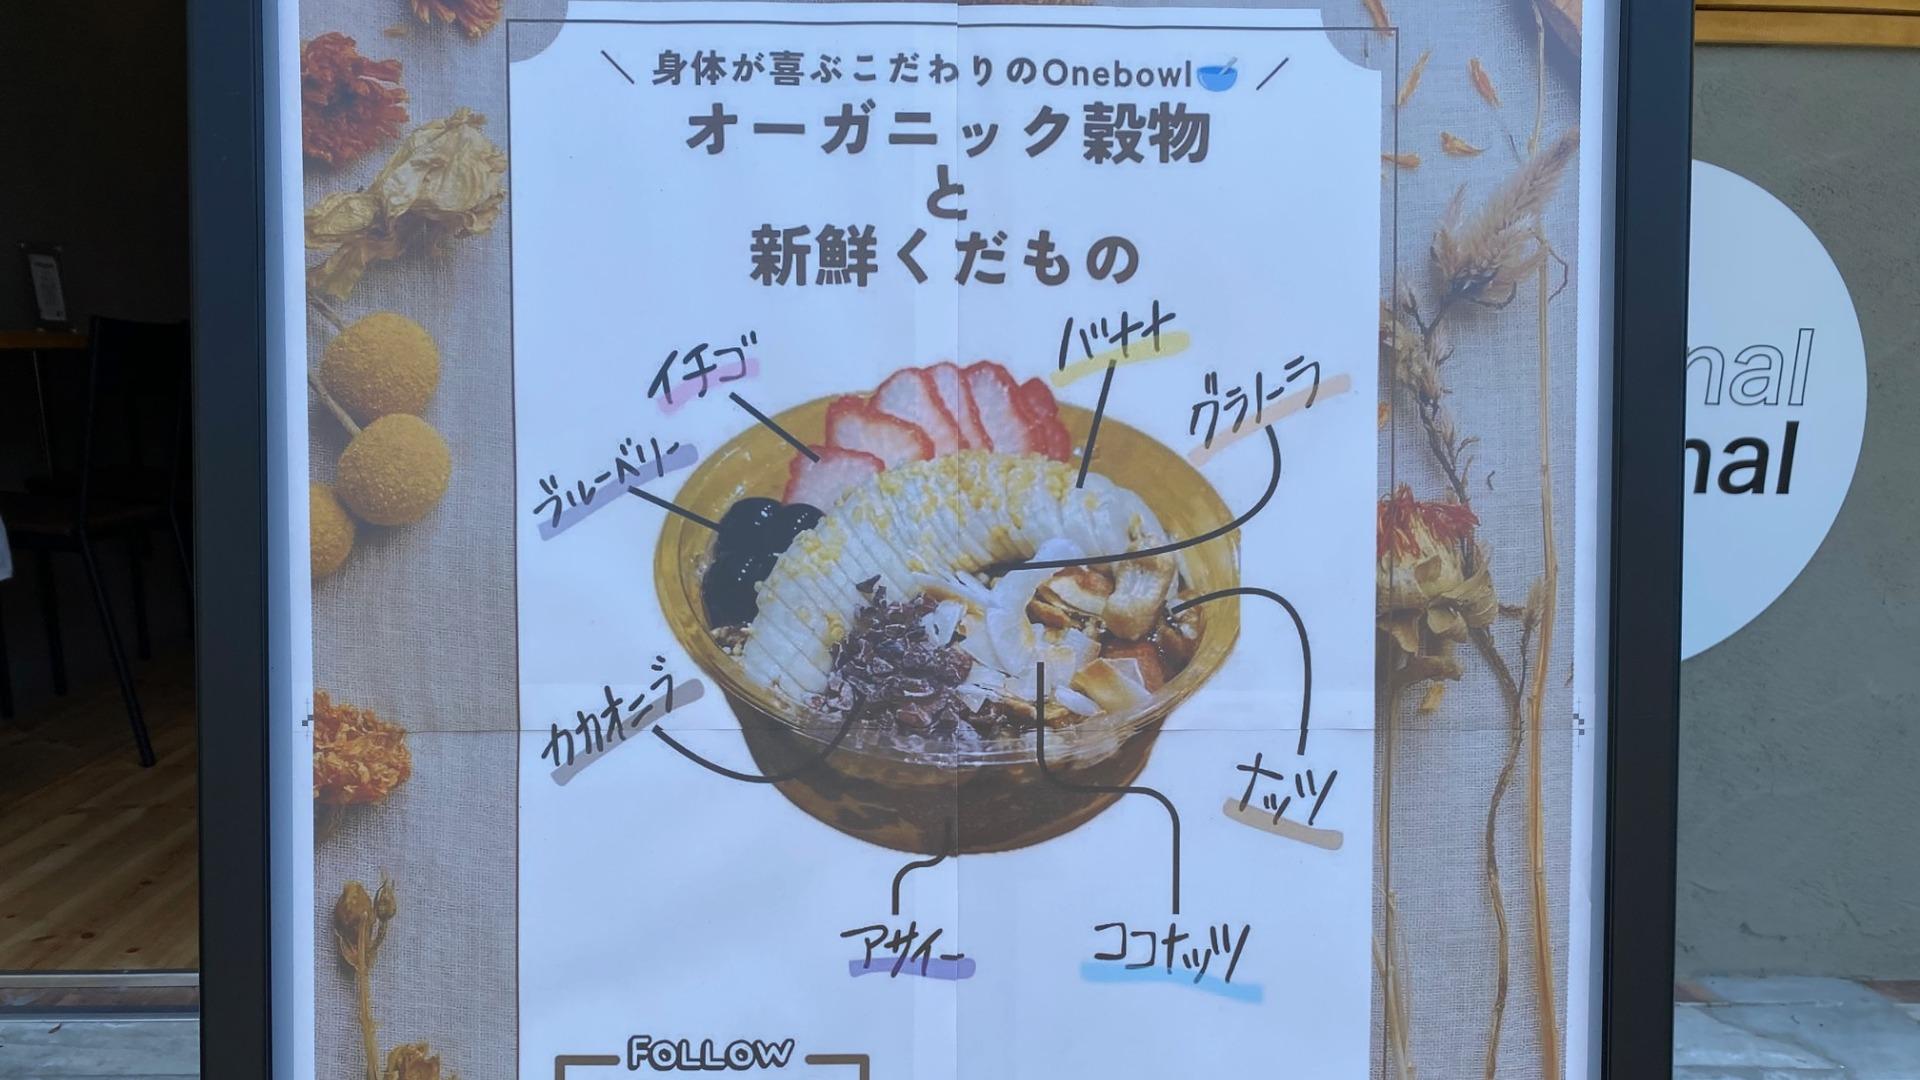 身体が喜ぶこだわりのOnebowl
オーガニック穀物
と
新鮮くだもの
イチゴ
バナナ
グラノーラ
ブルーベリー
カカオニブ
ナッツ
アサイー
ココナッツ
FOLLOW
nal
nal